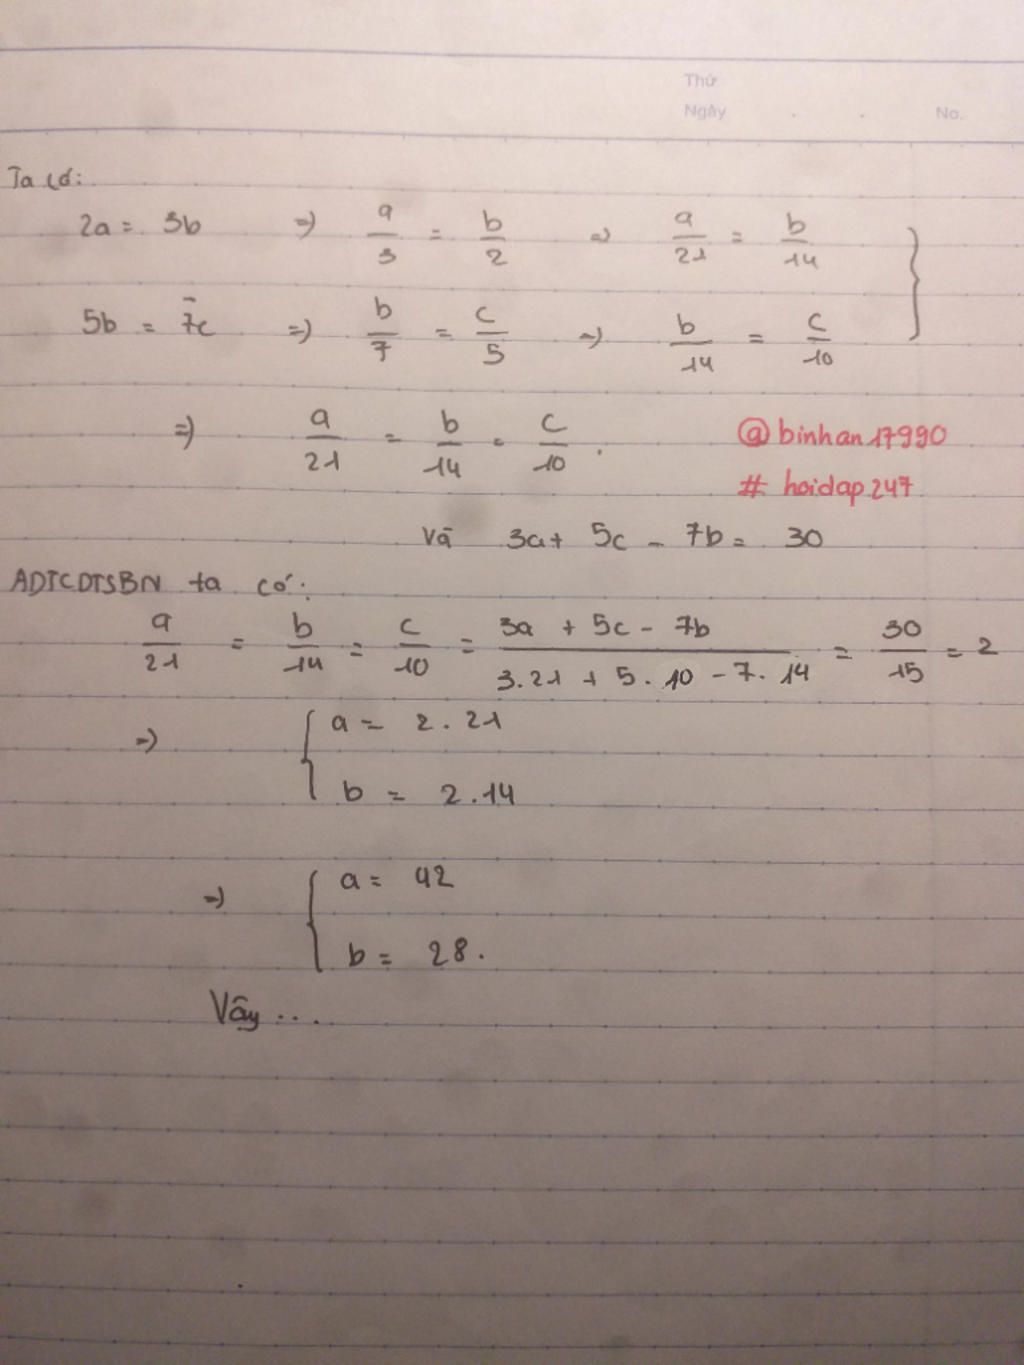 Thứ
Ngày . . No.
Ta có:
2a = 3b => a/3 = b/2 => a/21 = b/14 }
5b = 7c => b/7 = c/5 => b/14 = c/10
=> a/21 = b/14 = c/10 .
@binhan17990
# hoidap247
Và 3a + 5c - 7b = 30
ADTCDTSBN ta có:
a/21 = b/14 = c/10 = (3a + 5c - 7b)/(3.21 + 5.10 - 7.14) = 30/15 = 2
=> { a = 2.21
b = 2.14
=> { a = 42
b = 28.
Vậy ...